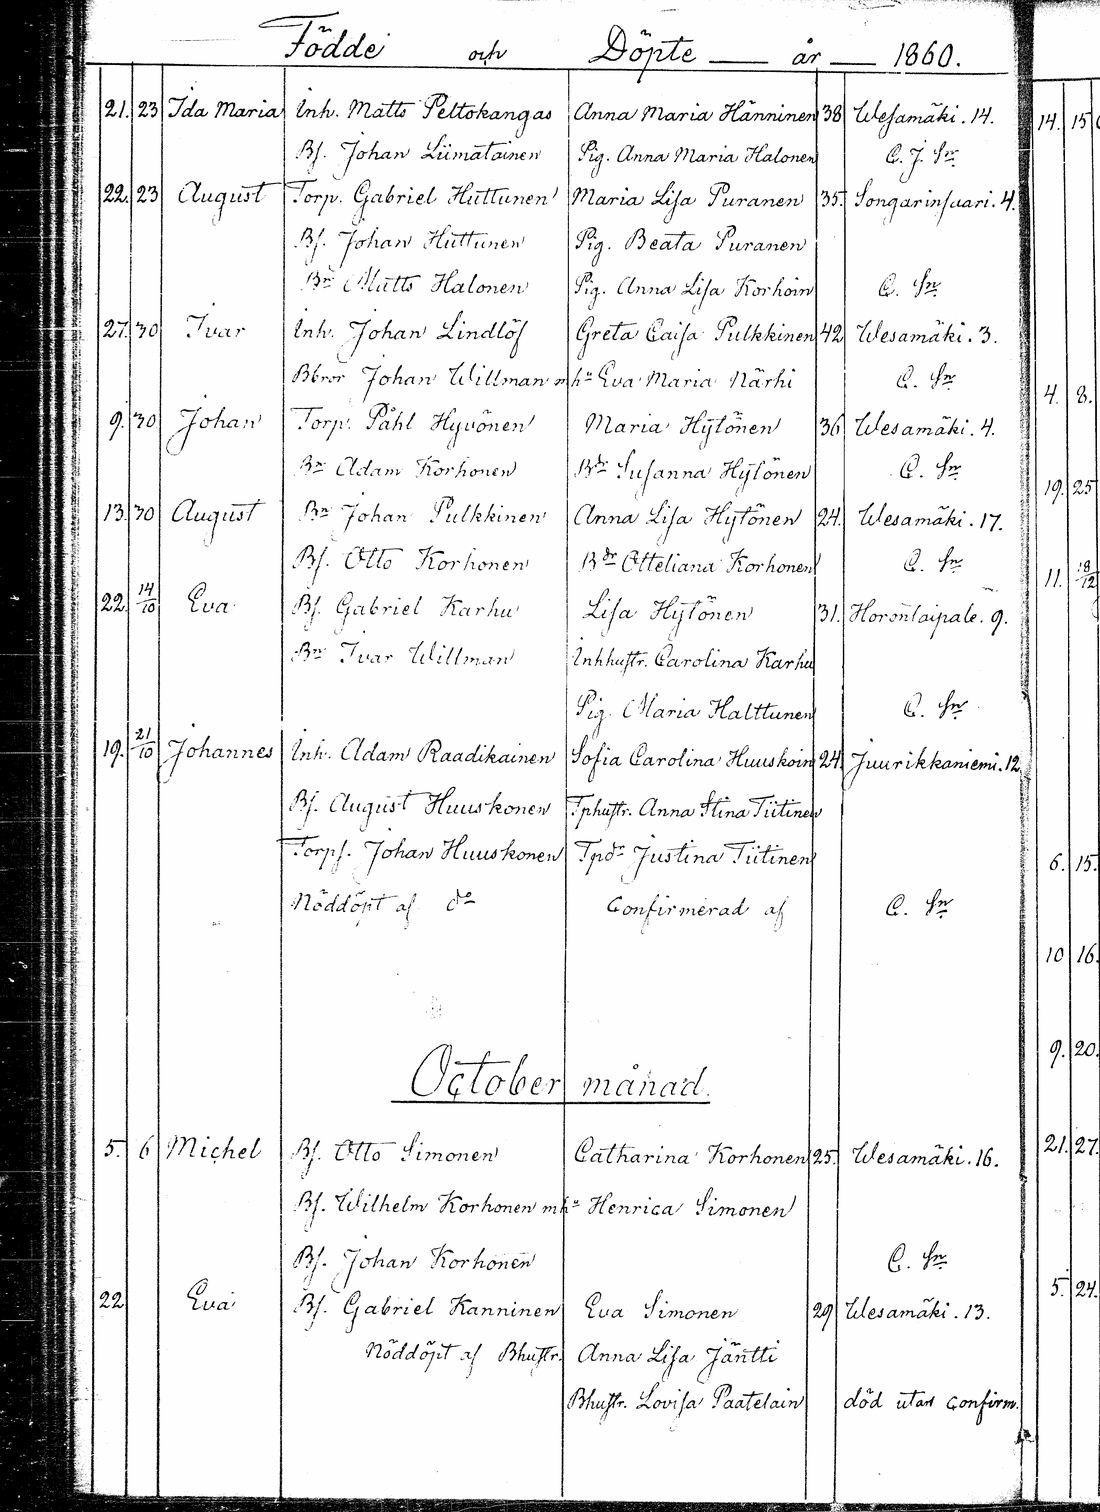 Födde och Döpte — år — 1860.
21. 23 Ida Maria Inh. Matts Peltokangas Anna Maria Hänninen 38 Wesamäki. 14.
Bs. Johan Liimatainen Pig. Anna Maria Halonen C. J. Sn
22. 23 August Torp. Gabriel Huttunen Maria Lisa Puranen 35. Songarinsaari. 4.
Bs. Johan Huttunen Pig. Beata Puranen
Bn Matts Halonen Pig. Anna Lisa Korhoin C. Sn
27. 30 Ivar Inh. Johan Lindlöf Greta Caisa Pulkkinen 42 Wesamäki. 3.
Bbror Johan Willman m hu Eva Maria Närhi C. Sn
9. 30 Johan Torp. Påhl Hyvönen Maria Hytönen 36 Wesamäki. 4.
Bn Adam Korhonen Bdr Susanna Hytönen C. Sn
13. 30 August Bn Johan Pulkkinen Anna Lisa Hytönen 24. Wesamäki. 17.
Bs. Otto Korhonen Bdr Otteliana Korhonen C. Sn
22. 14/10 Eva Bs. Gabriel Karhu Lisa Hytönen 31. Horontaipale. 9.
Bn Ivar Willman Inhhustr. Carolina Karhu
Pig. Maria Halttunen C. Sn
19. 21/10 Johannes Inh. Adam Raadikainen Sofia Carolina Huuskoin 24. Juurikkaniemi. 12
Bs. August Huuskonen Tphustr. Anna Stina Tiitinen
Torps. Johan Huuskonen Tpdr Justina Tiitinen
Nöddöpt af do Confirmerad af C. Sn
October månad.
5. 6 Michel Bs. Otto Simonen Catharina Korhonen 25. Wesamäki. 16.
Bs. Wilhelm Korhonen m hu Henrica Simonen
Bs. Johan Korhonen C. Sn
22 Eva Bs. Gabriel Kanninen Eva Simonen 29 Wesamäki. 13.
Nöddöpt af Bhustr. Anna Lisa Jäntti
Bhustr. Lovisa Paatelain död utan confirm.
14. 15
4. 8.
19. 25
11. 18/12
6. 15.
10 16.
9. 20.
21. 27.
5. 24.